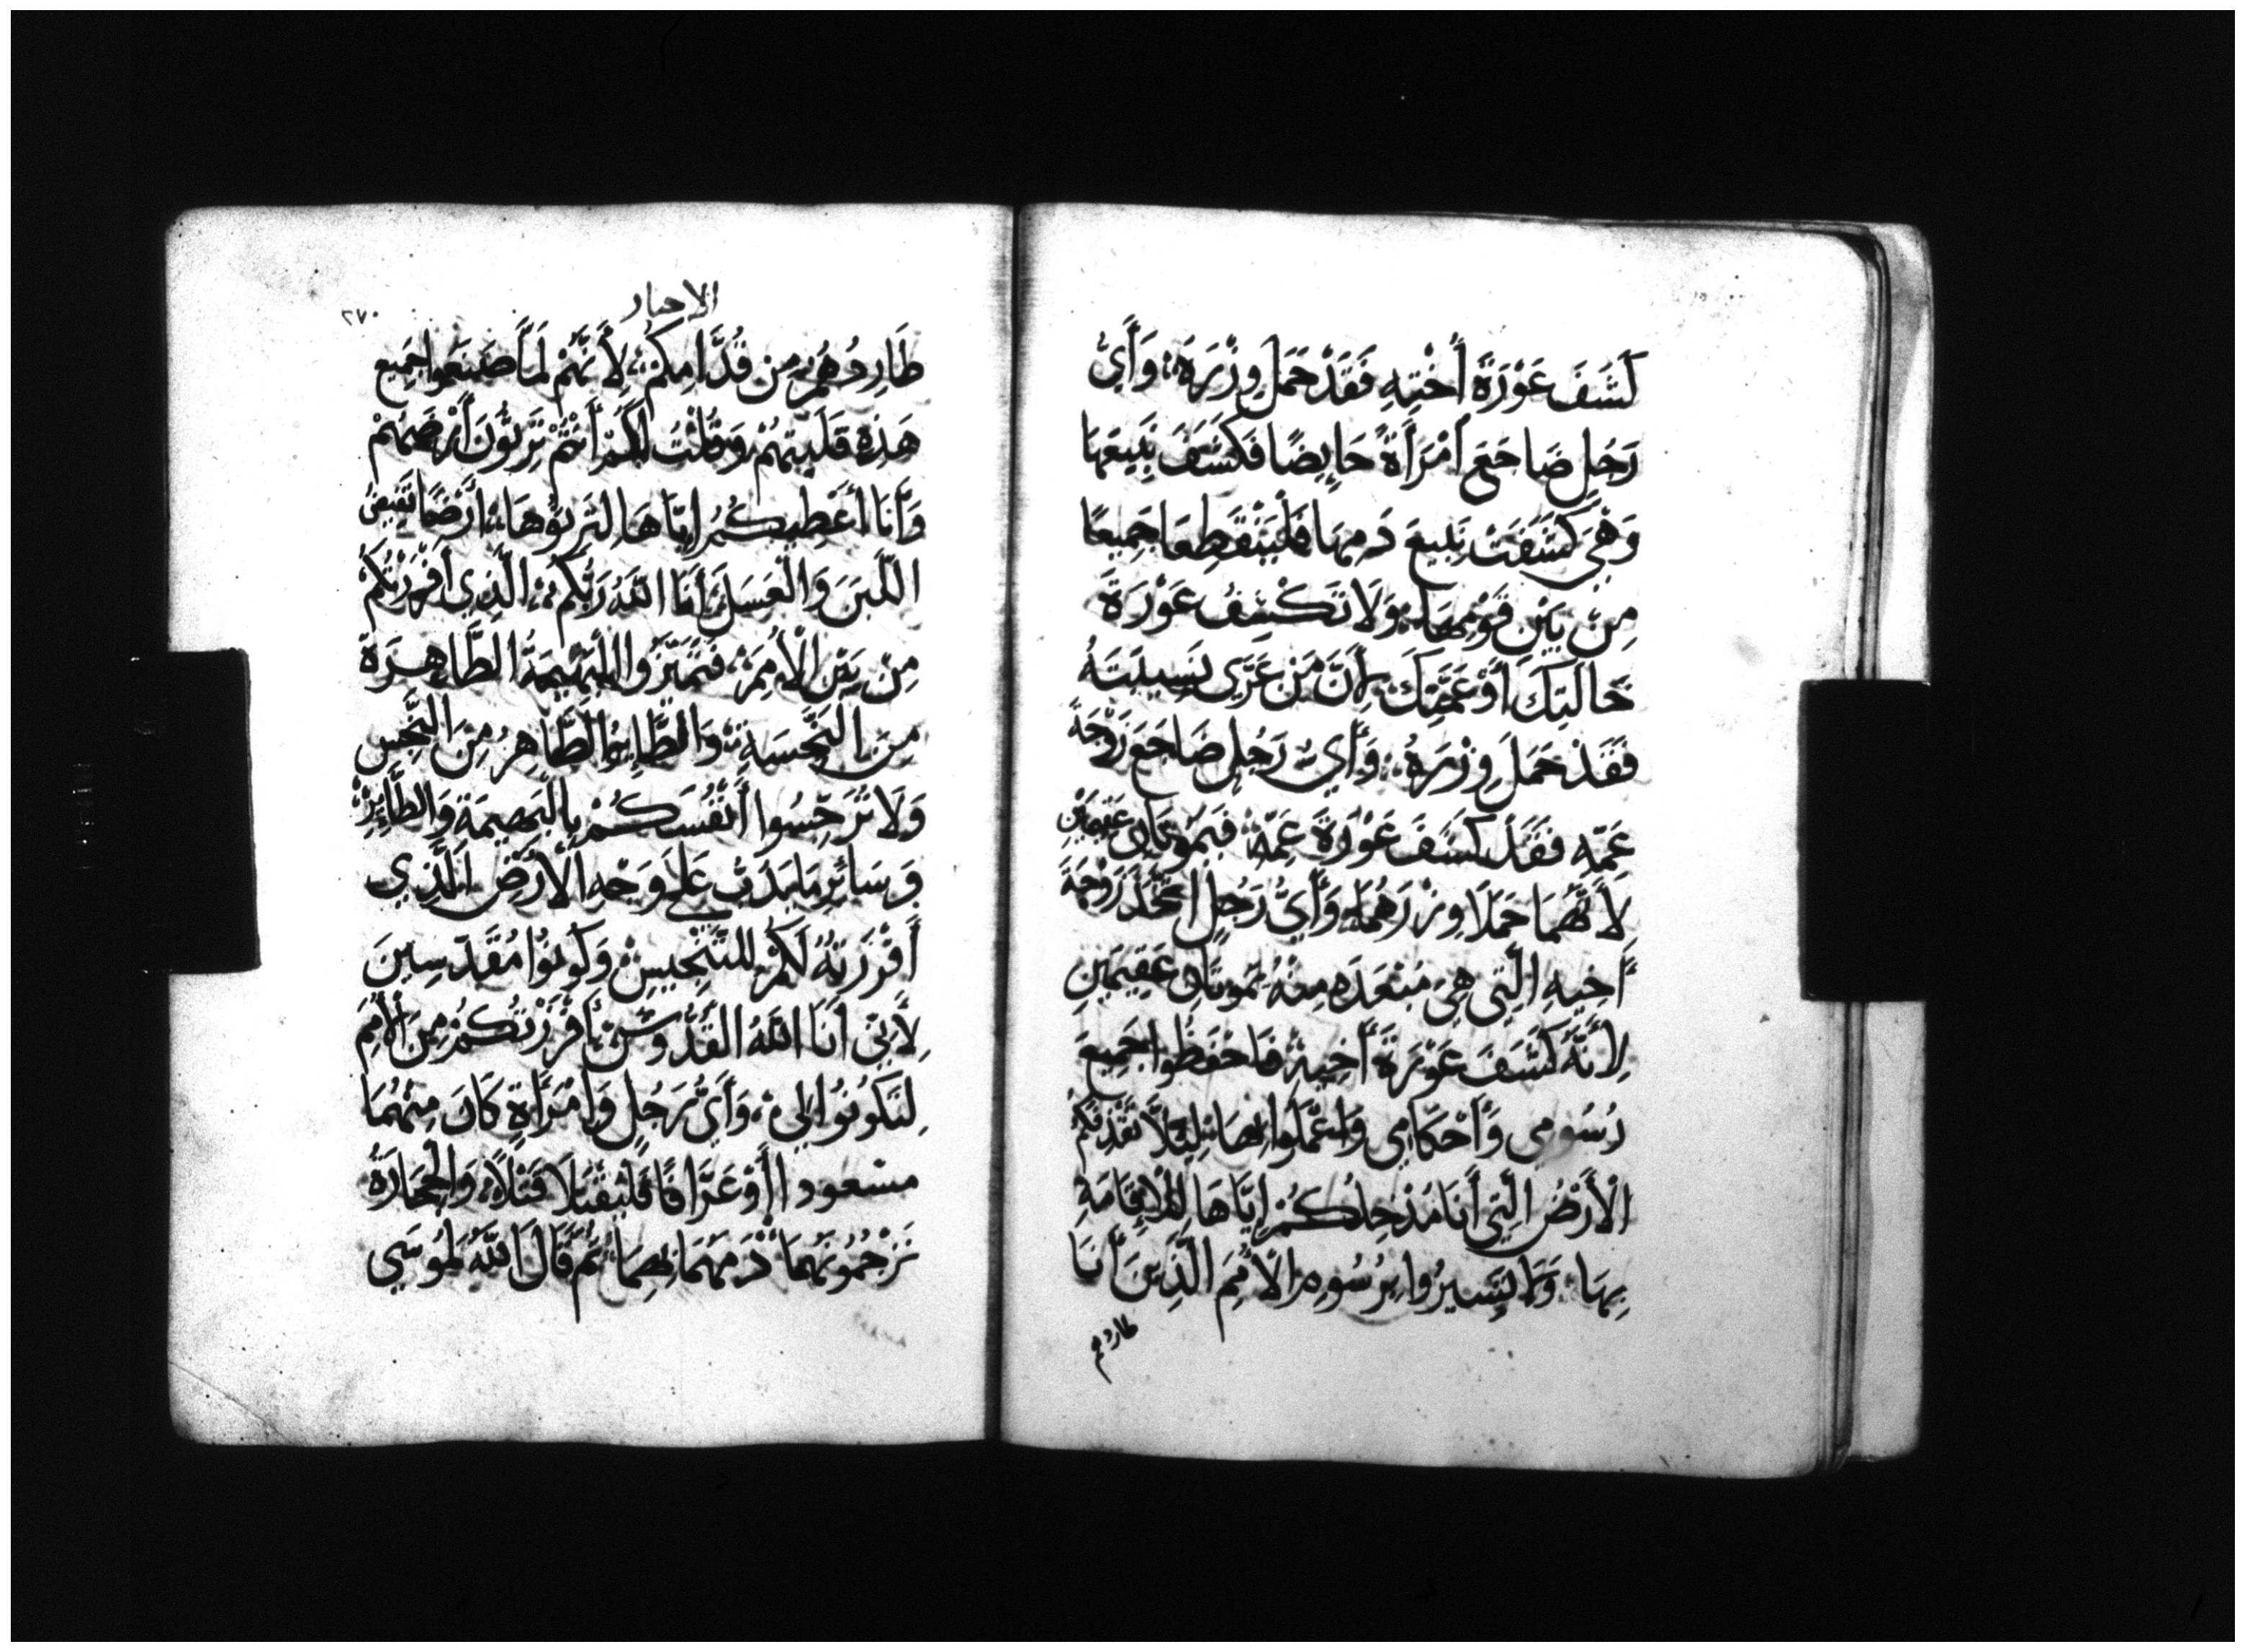 كَشَفَ عَوْرَةَ أُخْتِهِ فَقَدْ حَمَلَ وِزْرَهُ، وَأَيُّ
رَجُلٍ ضَاجَعَ أَمْرَأَةً حَايِضًا فَكَشَفَ نَبِيعَهَا
وَهْيَ كَشَفَتْ نَبِيعَ دَمِهَا فَلْيَنْقَطِعَا جَمِيعًا
مِنْ بَيْنِ قَوْمِهَا، وَلَا تَكْشِفْ عَوْرَةَ
خَالَتِكَ أَوْ عَمَّتِكَ لِأَنَّ مَنْ عَرَّى نَسِيبَتَهُ
فَقَدْ حَمَلَ وِزْرَهُ، وَأَيُّ رَجُلٍ ضَاجَعَ زَوْجَةَ
عَمِّهِ فَقَدْ كَشَفَ عَوْرَةَ عَمِّهِ فَيَمُوتَانِ عَقِيمَيْنِ
لِأَنَّهُمَا حَمَلَا وِزْرَهُمَا، وَأَيُّ رَجُلٍ اتَّخَذَ زَوْجَةَ
أَخِيهِ الَّتِي هِيَ مُبْعَدَه مِنْهُ يَمُوتَانِ عَقِيمَيْنِ
لِأَنَّهُ كَشَفَ عَوْرَةَ أَخِيهِ فَاحْفَظُوا جَمِيعَ
رُسُومِي وَأَحْكَامِي وَاعْمَلُوا بِهَا لِئَلَّا تَقْذِفَكُمْ
الْأَرْضُ الَّتِي أَنَا مُدْخِلُكُمْ إِيَّاهَا لِلْإِقَامَةِ
بِهَا، وَلَا تَسِيرُوا بِرُسُومِ الْأُمَمِ الَّذِينَ أَنَا
طاردهم
الاحبار
٢٧٠
طَارِدُهُمْ مِن قُدَّامِكُمْ، لِأَنَّهُمْ لَمَّا صَنَعُوا جَمِيع
هَذِهِ قَلَيْتُهُمْ، وَقُلْتُ لَكُمْ أَنْتُمْ تَرِثُونَ أَرْضَهُمْ
وَأَنَا أُعْطِيكُمْ إِيَّاهَا لِتَرِثُوهَا، أَرْضًا تَفِيضُ
اللَّبَنَ وَالْعَسَلَ أَنَا اللَّهُ رَبُّكُمْ، الَّذِي أَفْرَزْتُكُمْ
مِنْ بَيْنِ الْأُمَمِ، فَمَيِّزُوا الْبَهِيمَةَ الطَّاهِرَةَ
مِنَ النَّجِسَةِ، وَالطَّائِرَ الطَّاهِرُ مِنَ النَّجِسِ
وَلَا تُرَجِّسُوا أَنْفُسَكُمْ بِالْبَهِيمَةِ وَالطَّائِرِ
وَسَائِرِ مَا يَدَبُّ عَلَى وَجْهِ الْأَرْضِ الَّذِي
أَفْرَزْتُهُ لَكُمْ لِلتَّنْجِيسِ، وَكُونُوا مُقَدَّسِينَ
لِأَنِّي أَنَا اللَّهُ الْقُدُّوسُ، أَفْرَزْتُكُمْ مِنَ الْأُمَمِ
لِتَكُونُوا لِي، وَأَيُّ رَجُلٍ وَامْرَأَةٍ كَانَ مِنْهُمَا
مسْعود ا أَوْ عَرَّافًا فَلْيُقْتَلَا قَتْلًا، وَالْحِجَارَةُ
تَرْجُمُونَهُمَا دَمَهُمَا بِهِمَا ثُمَّ قَالَ اللَّهُ لِمُوسَى